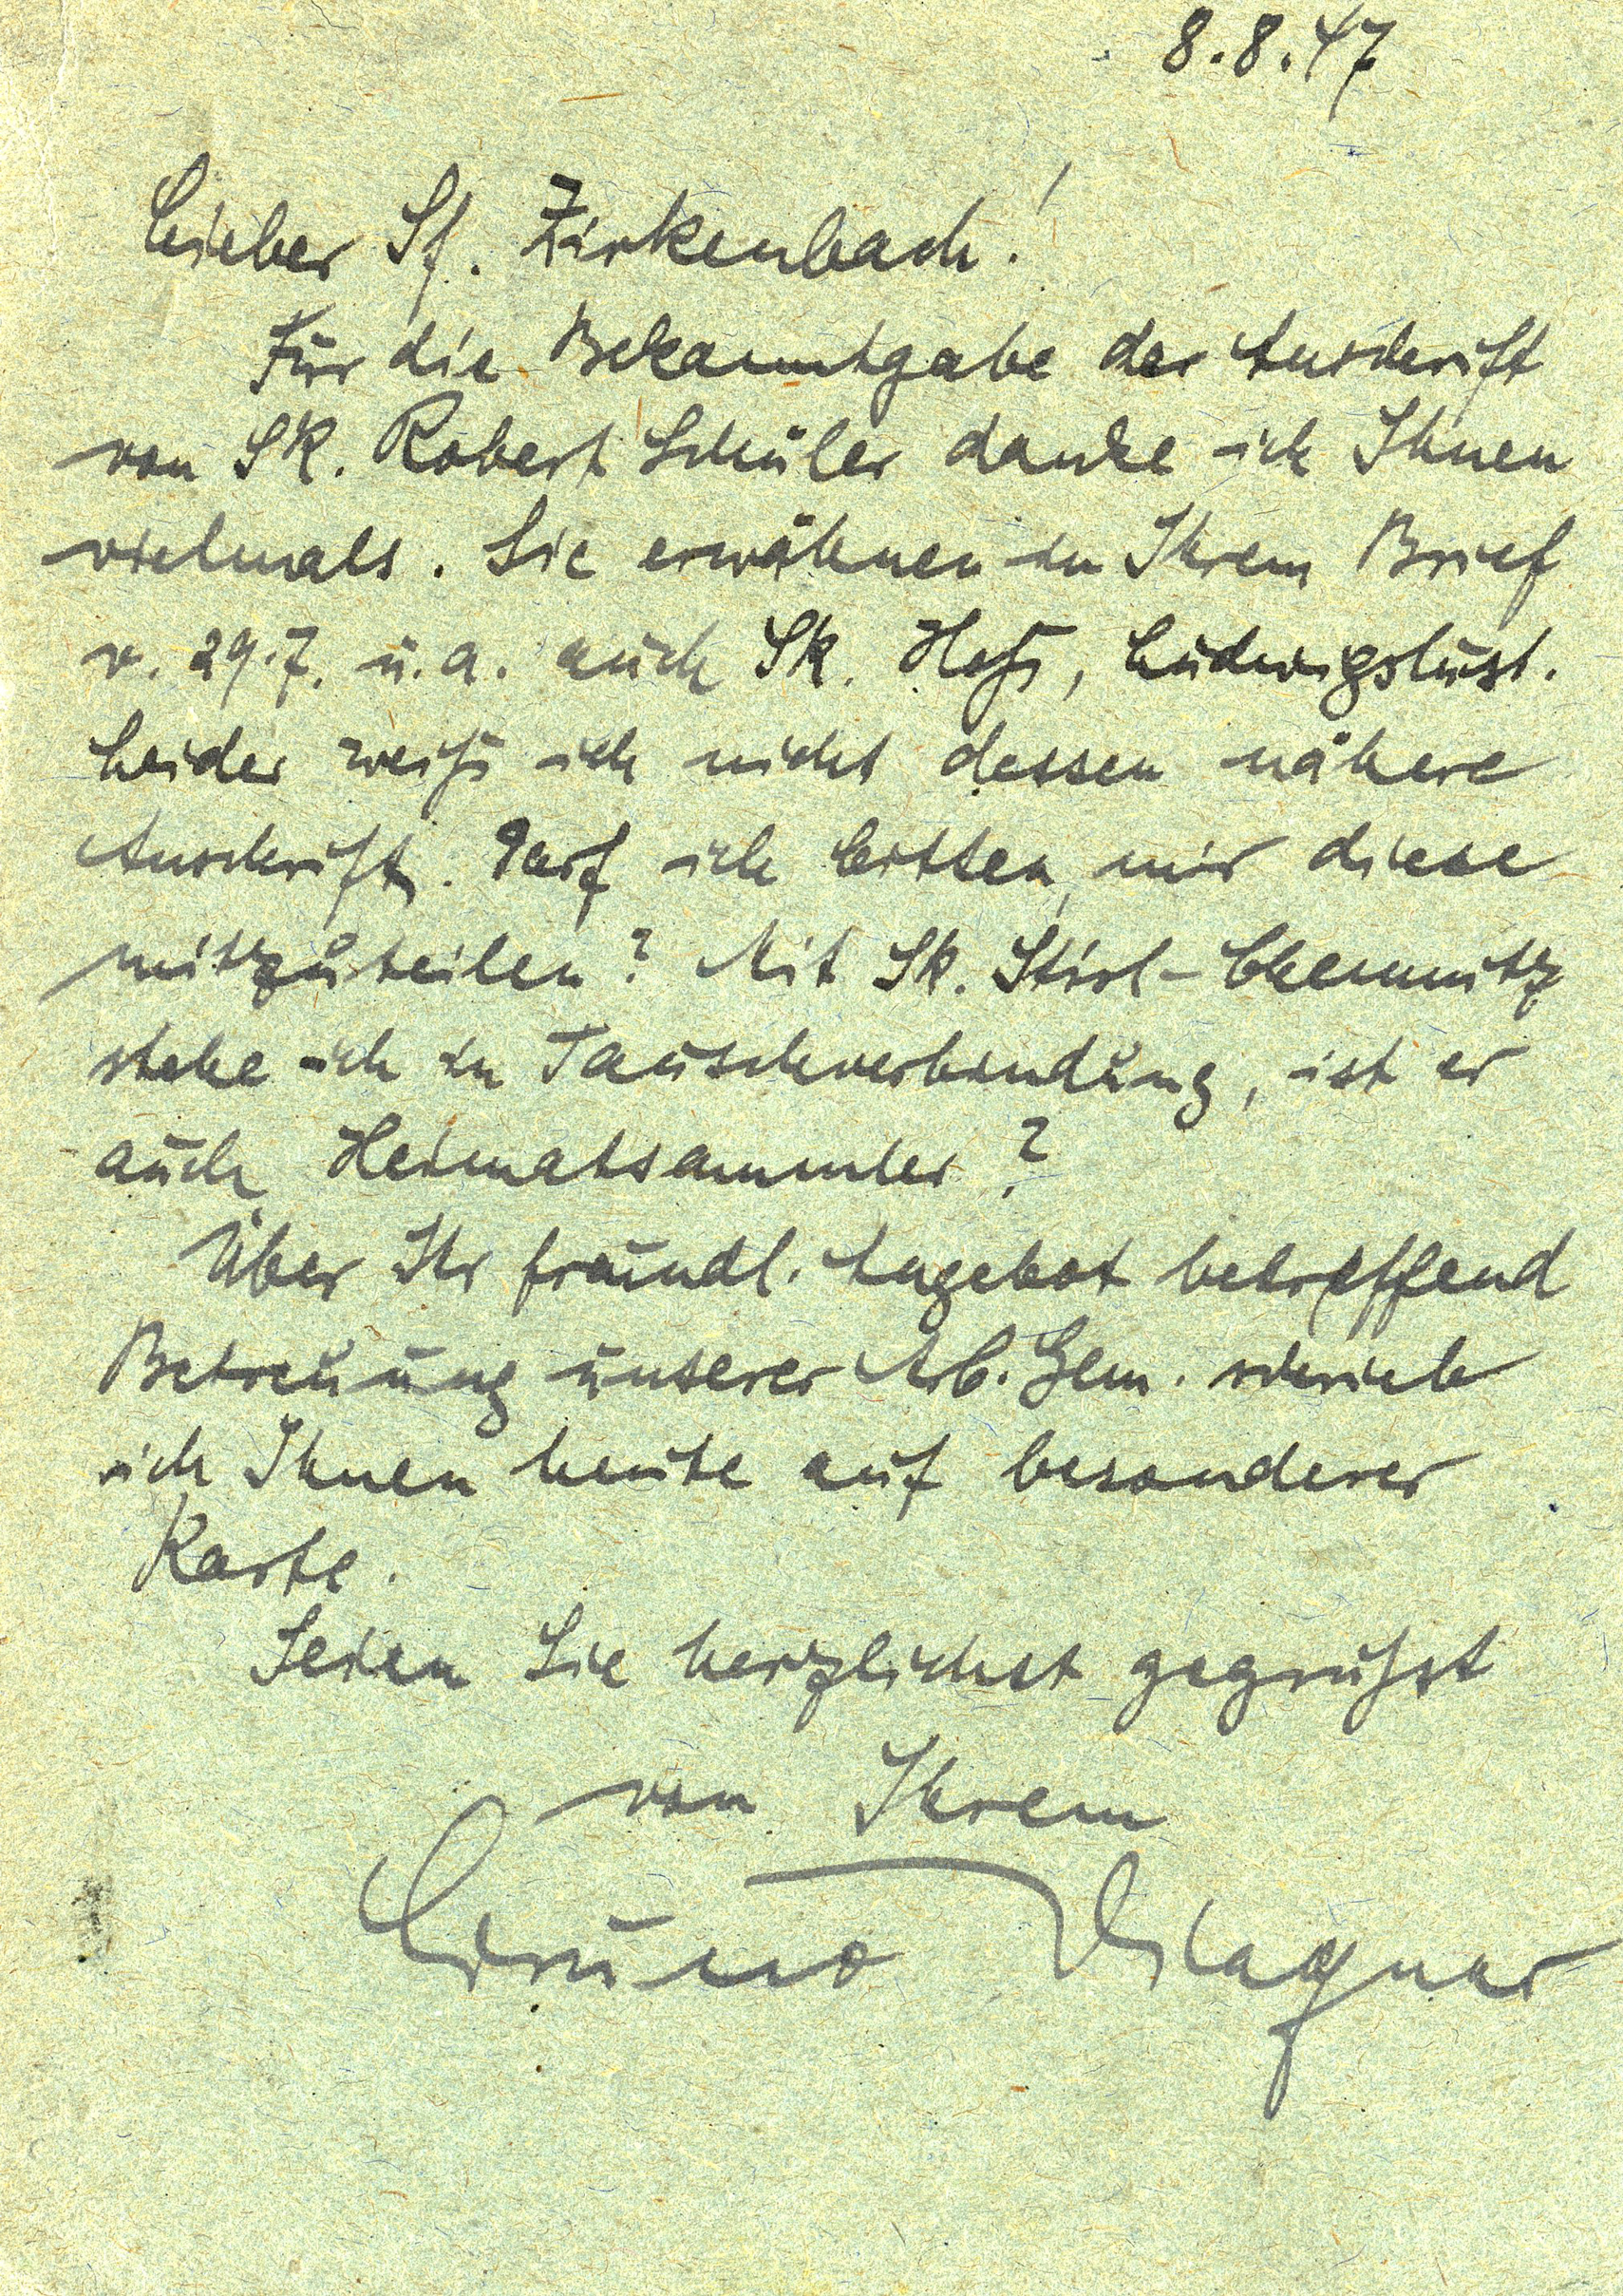 8.8.47
Lieber Sf. Zirkenbach!
Für die Bekanntgabe der Anschrift
von SK. Robert Schüler danke ich Ihnen
vielmals. Sie erwähnen in Ihrem Brief
v. 29.7. u.a. auch Sk. Hoß, Ludwigslust.
Leider weiß ich nicht dessen nähere
Anschrift. Darf ich bitten, mir diese
mitzuteilen? Mit Sk. Stirl-Chemnitz
stehe ich in Tauschverbindung, ist er
auch Heimatsammler?
Über Ihr freundl. Angebot betreffend
Betreuung unserer Arb. Gem. schrieb
ich Ihnen heute auf besonderer
Karte.
Seien Sie herzlichst gegrüßt
von Ihrem
Bruno Wagner